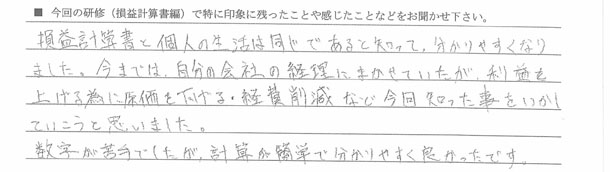 ■ 今回の研修（損益計算書編）で特に印象に残ったことや感じたことなどをお聞かせ下さい。
損益計算書と個人の生活は同じであると知って、分かりやすくなり
ました。今までは、自分の会社の経理にまかせていたが、利益を
上げる為に原価を下げる・経費削減など今回知った事をいかし
ていこうと思いました。
数字が苦手でしたが、計算が簡単で分かりやすく良かったです。